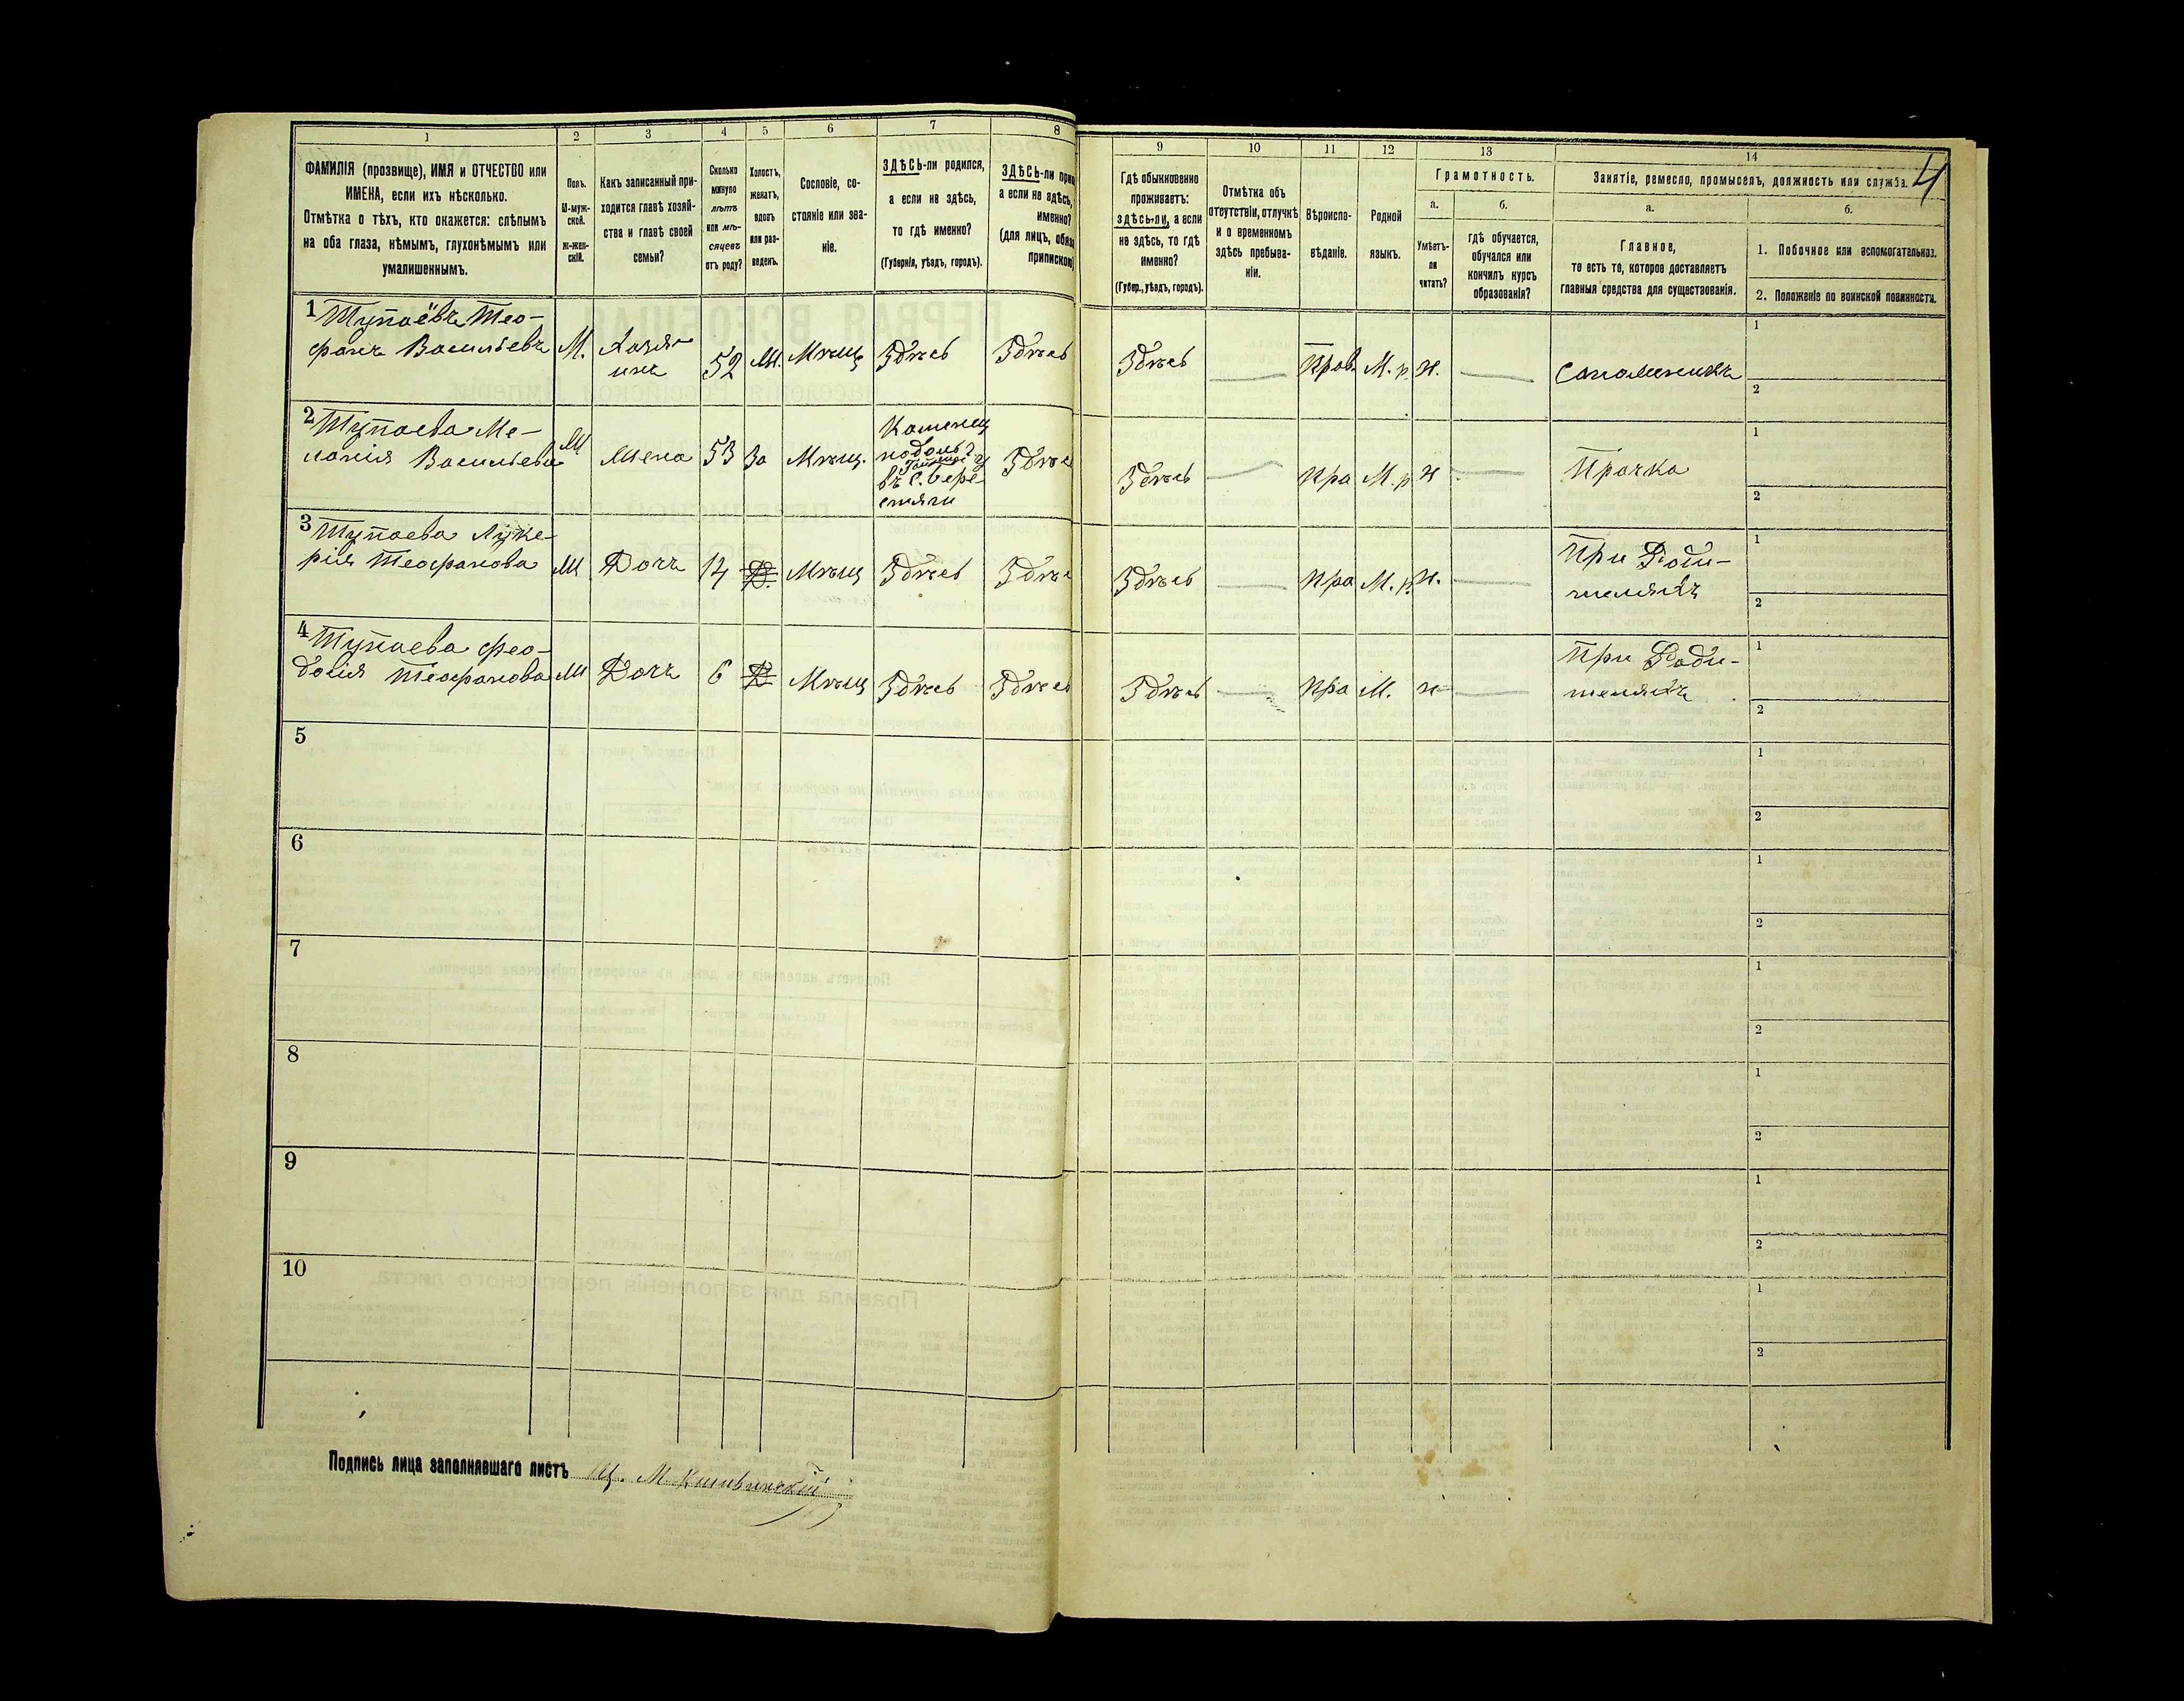 1 2 3 4 5 6 7 8
ФАМИЛІЯ (прозвище), ИМЯ и ОТЧЕСТВО или
ИМЕНА, если ихъ нѣсколько.
Отмѣтка о тѣхъ, кто окажется: слѣпымъ
на оба глаза, нѣмымъ, глухонѣмымъ или
умалишеннымъ.
Полъ.
М-муж-
ской.
Ж-жен-
скій.
Какъ записанный при-
ходится главѣ хозяй-
ства и главѣ своей
семьи?
Сколько
минуло
лѣтъ
или мѣ-
сяцевъ
отъ роду?
Холостъ,
женатъ,
вдовъ
или раз-
веденъ.
Сословіе, со-
стояніе или зва-
ніе.
ЗДѢСЬ-ли родился,
а если не здѣсь,
то гдѣ именно?
(Губернія, уѣздъ, городъ).
ЗДѢСЬ-ли
а если не здѣсь,
именно?
(для лицъ,
припискою
1 Тупаёвъ Тео-
фанъ Васильевъ М. Хозя-
инъ 52 Ж. Мѣщ Здѣсь Здѣсь
2 Тупаева Ме-
ланія Васильева Ж Жена 53 За Мѣщ. Каменец
подольс
въ С. Бере
стяги
3 Тупаева Луке-
рія Теофанова Ж Дочь 14 Д. Мѣщ Здѣсь
4 Тупаева Фео-
досія Теофанова Ж Дочь 6 Д Мѣщ Здѣсь Здѣсь
5
6
7
8
9
10
Подпись лица заполнявшаго листъ
9 10 11 12 13 14
4
Гдѣ обыкновенно
проживаетъ:
здѣсь-ли, а если
не здѣсь, то гдѣ
именно?
(Губер., уѣздъ, городъ).
Отмѣтка объ
отсутствіи, отлучкѣ
и о временномъ
здѣсь пребыва-
ніи.
Вѣроиспо-
вѣданіе.
Родной
языкъ.
Грамотность.
а. б.
Умѣетъ-
ли
читать?
гдѣ обучается,
обучался или
кончилъ курсъ
образованія?
Занятіе, ремесло, промыселъ, должность или служба.
а. б.
Главное,
то есть то, которое доставляетъ
главныя средства для существованія.
1. Побочное или вспомогательное.
2. Положеніе по воинской повинности.
Здѣсь — Прав. М. р. н. — Сапожникъ 1
2
Здѣсь — Пра М. р н — Прачка 1
2
Здѣсь — Пра М. р. н. — При Роди-
теляхъ 1
2
Здѣсь — Пра М. н — При Роди-
теляхъ 1
2
1
2
1
2
1
2
1
2
1
2
1
2